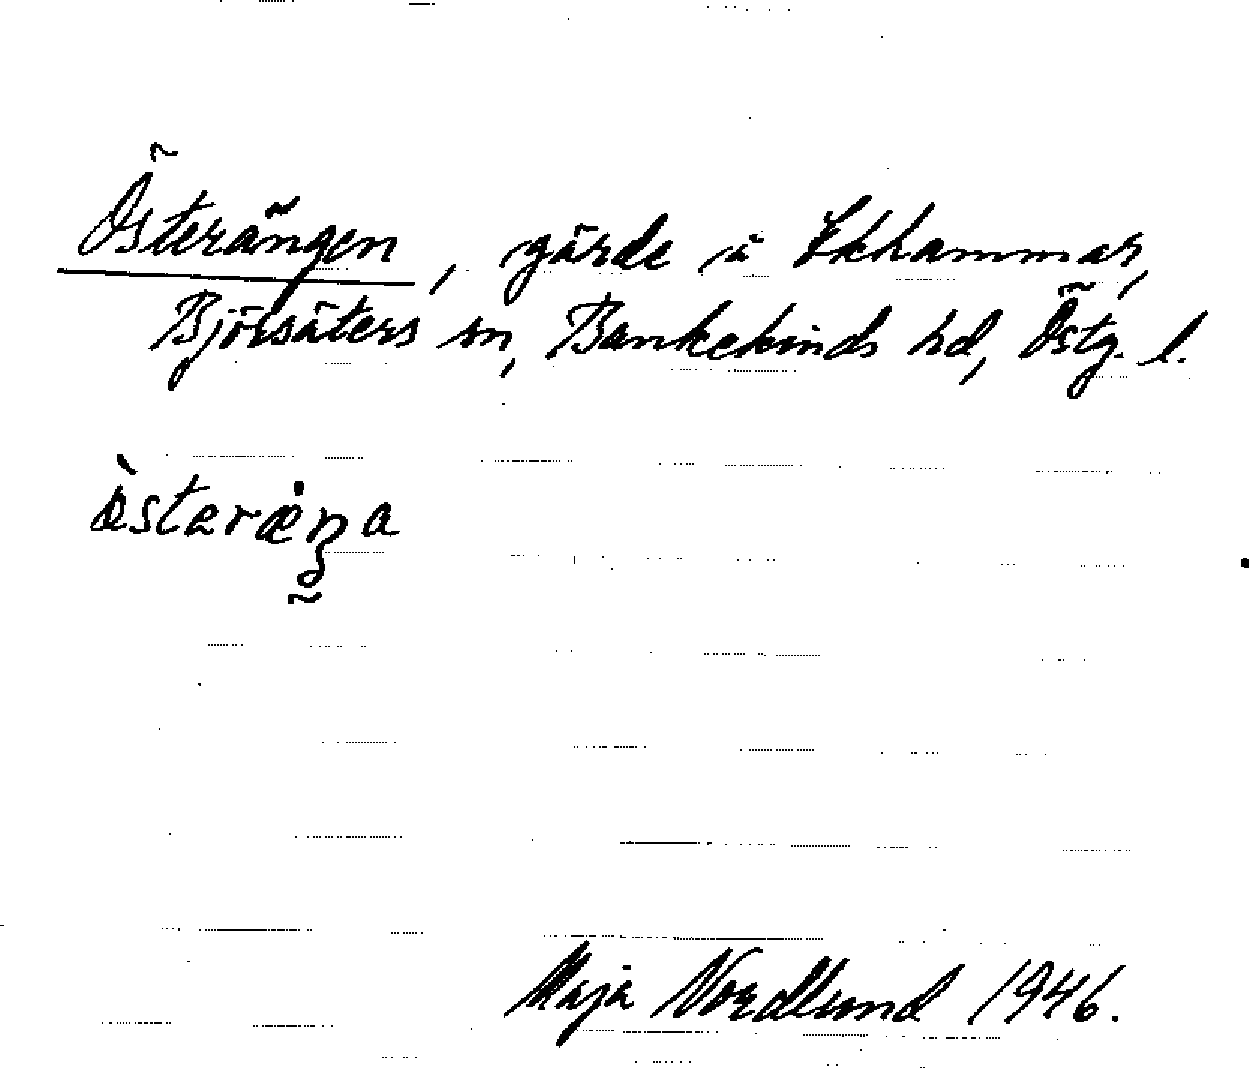 Österängen, gärde i Ekhammar,
Björsäters sn, Bankekinds hd, Östg. l.
östaræŋa
Maja Nordlund 1946.